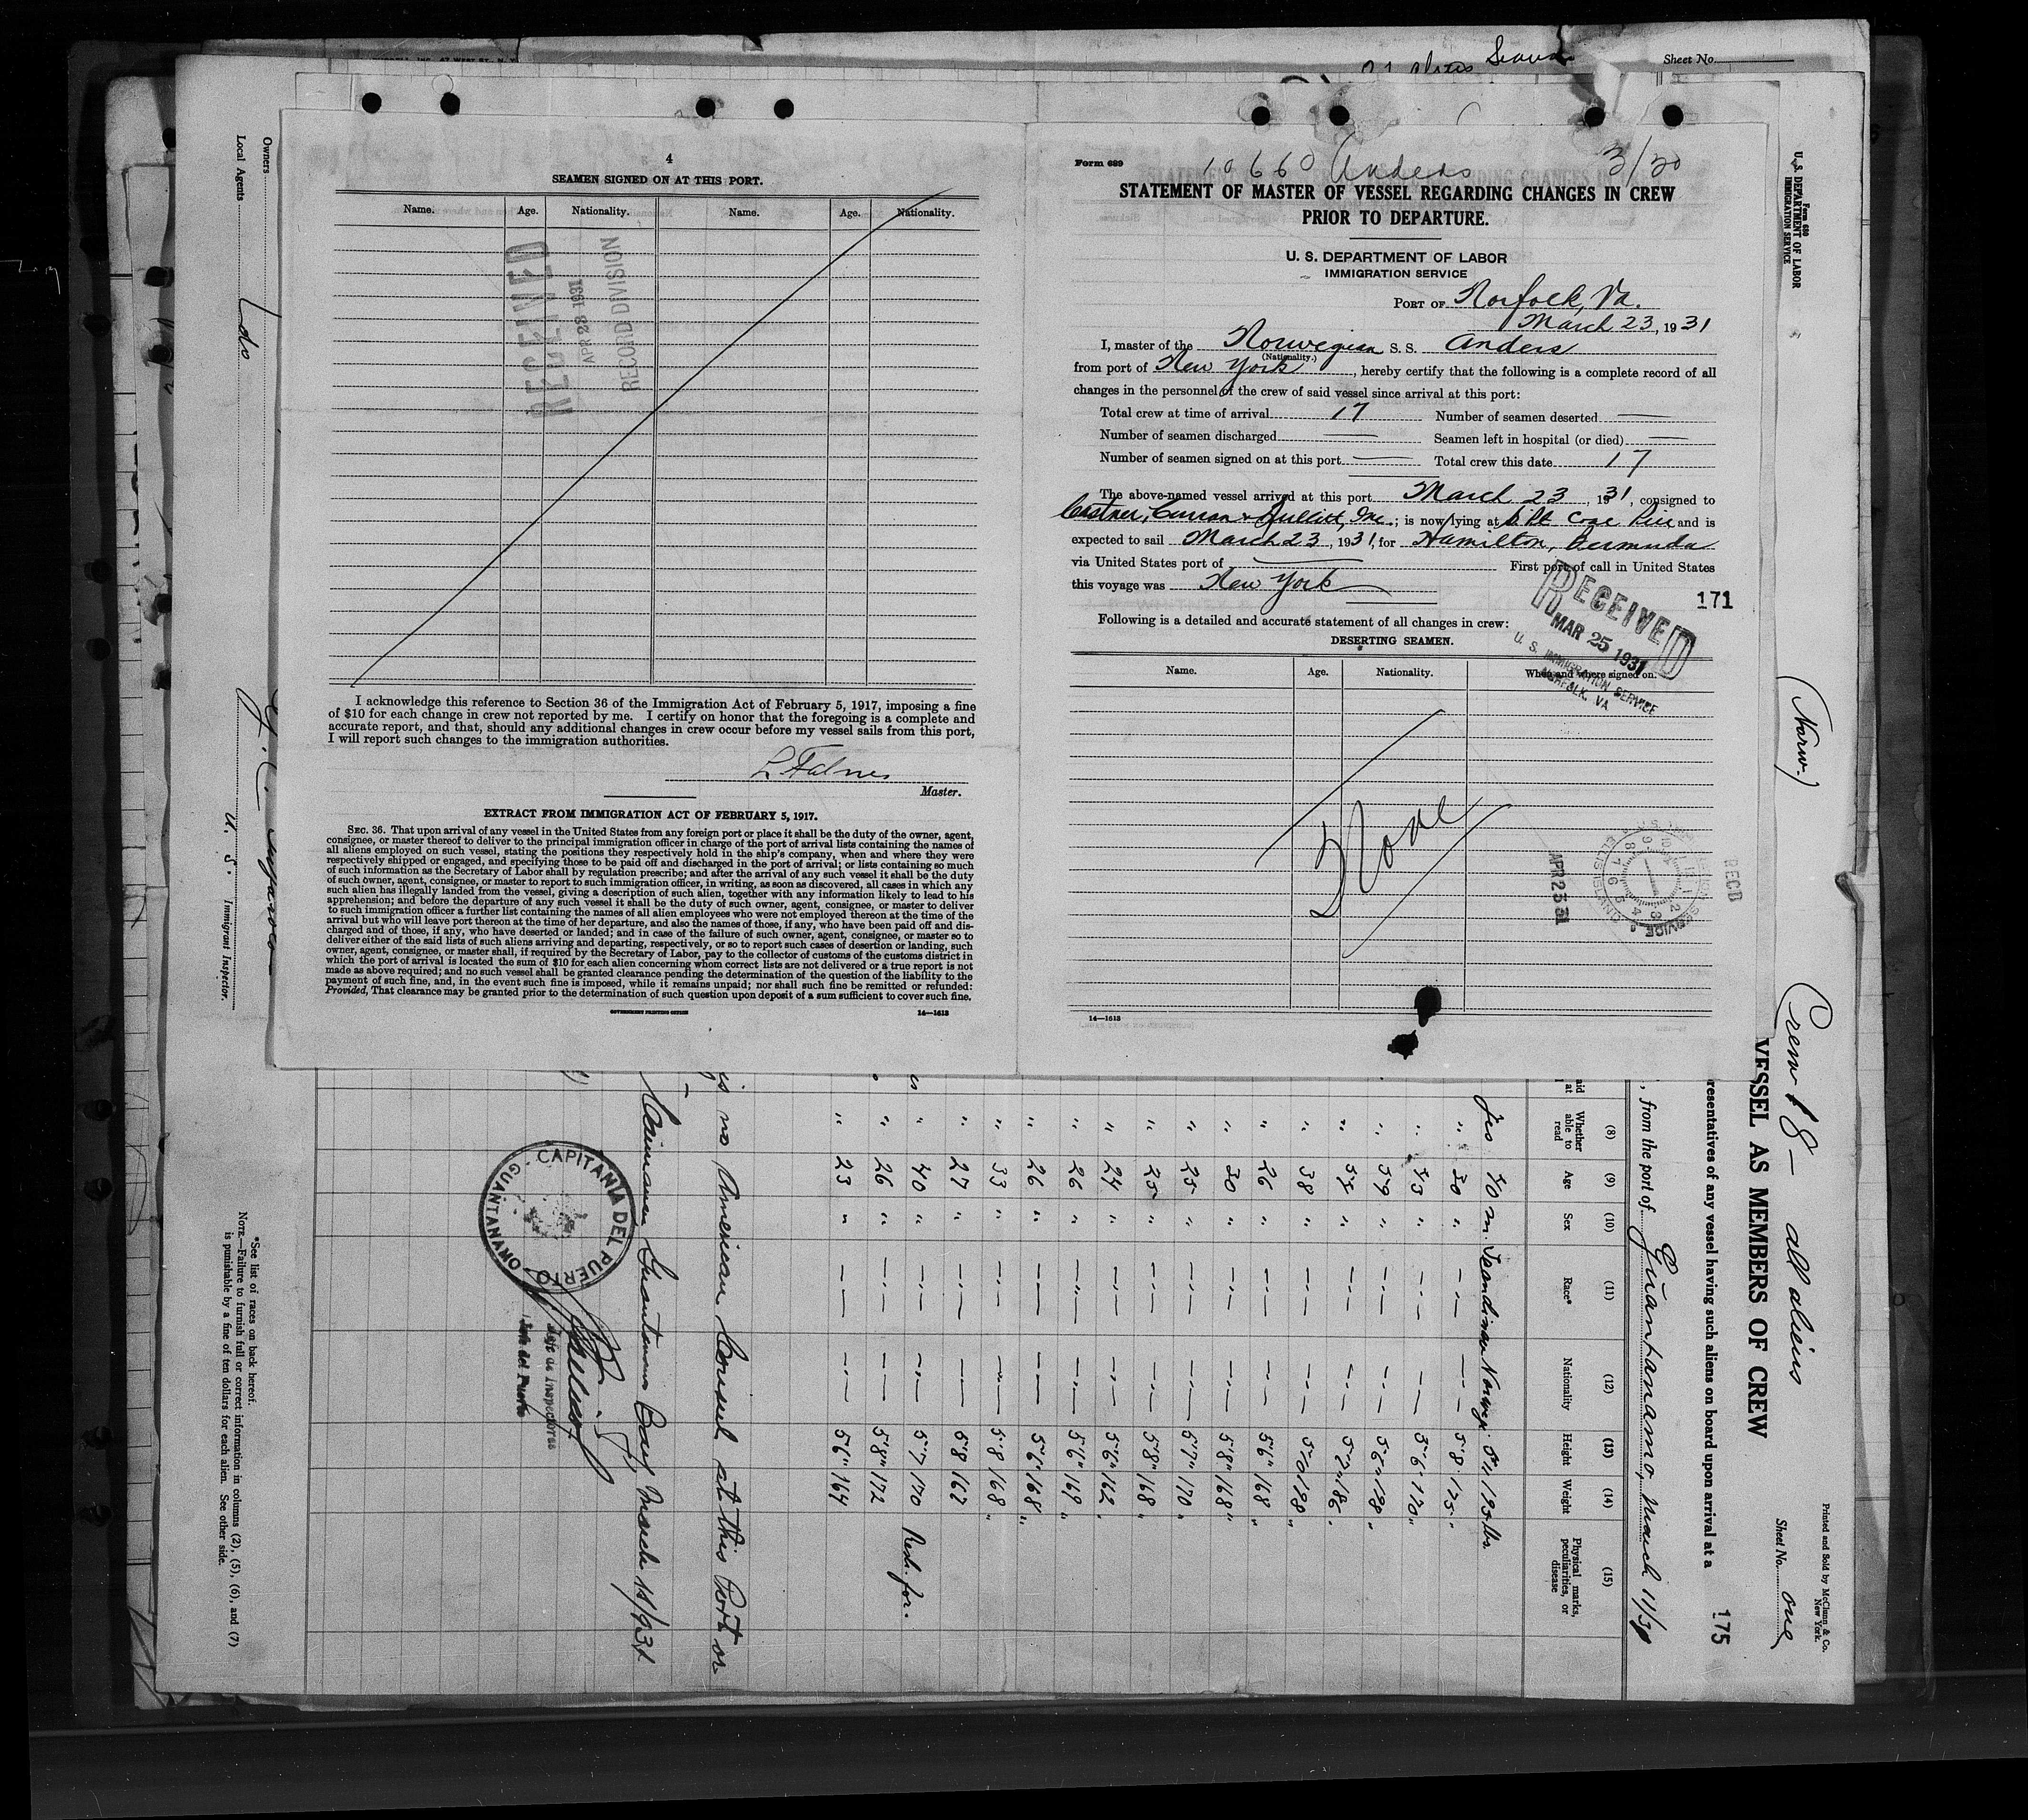 Sheet No.
4
SEAMEN SIGNED ON AT THIS PORT.
Name. Age. Nationality. Name. Age. Nationality.
RECEIVED
APR 23 1931
RECORD DIVISION
I acknowledge this reference to Section 36 of the Immigration Act of February 5, 1917, imposing a fine
of $10 for each change in crew not reported by me. I certify on honor that the foregoing is a complete and
accurate report, and that, should any additional changes in crew occur before my vessel sails from this port,
I will report such changes to the immigration authorities.
L Falnes
Master.
EXTRACT FROM IMMIGRATION ACT OF FEBRUARY 5, 1917.
SEC. 36. That upon arrival of any vessel in the United States from any foreign port or place it shall be the duty of the owner, agent,
consignee, or master thereof to deliver to the principal immigration officer in charge of the port of arrival lists containing the names of
all aliens employed on such vessel, stating the positions they respectively hold in the ship's company, when and where they were
respectively shipped or engaged, and specifying those to be paid off and discharged in the port of arrival; or lists containing so much
of such information as the Secretary of Labor shall by regulation prescribe; and after the arrival of any such vessel it shall be the duty
of such owner, agent, consignee, or master to report to such immigration officer, in writing, as soon as discovered, all cases in which any
such alien has illegally landed from the vessel, giving a description of such alien, together with any information likely to lead to his
apprehension; and before the departure of any such vessel it shall be the duty of such owner, agent, consignee, or master to deliver
to such immigration officer a further list containing the names of all alien employees who were not employed thereon at the time of the
arrival but who will leave port thereon at the time of her departure, and also the names of those, if any, who have been paid off and dis-
charged and of those, if any, who have deserted or landed; and in case of the failure of such owner, agent, consignee, or master so to
deliver either of the said lists of such aliens arriving and departing, respectively, or so to report such cases of desertion or landing, such
owner, agent, consignee, or master shall, if required by the Secretary of Labor, pay to the collector of customs of the customs district in
which the port of arrival is located the sum of $10 for each alien concerning whom correct lists are not delivered or a true report is not
made as above required; and no such vessel shall be granted clearance pending the determination of the question of the liability to the
payment of such fine, and, in the event such fine is imposed, while it remains unpaid; nor shall such fine be remitted or refunded:
Provided, That clearance may be granted prior to the determination of such question upon deposit of a sum sufficient to cover such fine.
GOVERNMENT PRINTING OFFICE 14—1613
Form 689
10660 Anders 3/30
STATEMENT OF MASTER OF VESSEL REGARDING CHANGES IN CREW
PRIOR TO DEPARTURE.
U. S. DEPARTMENT OF LABOR
IMMIGRATION SERVICE
PORT OF Norfolk, Va.
March 23, 1931
I, master of the Norwegian S. S. Anders
(Nationality.)
from port of New York, hereby certify that the following is a complete record of all
changes in the personnel of the crew of said vessel since arrival at this port:
Total crew at time of arrival 17 Number of seamen deserted —
Number of seamen discharged — Seamen left in hospital (or died) —
Number of seamen signed on at this port — Total crew this date 17
The above-named vessel arrived at this port March 23, 1931, consigned to
Castner, Curran & Bullitt, Inc.; is now lying at L. Pt Coal Pier and is
expected to sail March 23, 1931, for Hamilton, Bermuda
via United States port of — First port of call in United States
this voyage was New York
171
Following is a detailed and accurate statement of all changes in crew:
RECEIVED
MAR 25 1931
U. S. IMMIGRATION SERVICE
NORFOLK, VA
DESERTING SEAMEN.
Name. Age. Nationality. When and where signed on.
None
APR 23 31
RECD
ELLIS ISLAND
14—1613
Form 689
U. S. DEPARTMENT OF LABOR
IMMIGRATION SERVICE
Owners
Local Agents do
U. S. Immigrant Inspector.
(Norw.)
Crew 18 — all aliens
Printed and Sold by McClunn & Co.
New York.
Sheet No. one
VESSEL AS MEMBERS OF CREW
resentatives of any vessel having such aliens on board upon arrival at a
175
, from the port of Guantanamo, March 11/31
(8) (9) (10) (11) (12) (13) (14) (15)
Whether able to read Age Sex Race* Nationality Height Weight Physical marks, peculiarities, or disease
Yes
" 30 "
" 38 "
" 26 " 5'6" 168 "
" 30 " 5'8" 168 "
" 25 " 5'7" 170 "
" 25 " 5'8" 168 "
" 24 " 5'6" 162 "
" 26 " 5'6" 169 "
" 26 " 5'6" 168 "
" 33 " 5'8 168 "
" 27 " 5'8 162
" 40 " 5'7 170
" 26 " 5'8" 172
" 23 " 5'6" 164
is no American Consul at this Port or
Caimanera Guantanamo Bay, March
CAPITANIA DEL PUERTO
GUANTANAMO
Jefe de Inspectores
del Puerto
*See list of races on back hereof.
NOTE.—Failure to furnish full or correct information in columns (2), (5), (6), and (7)
is punishable by a fine of ten dollars for each alien. See other side.